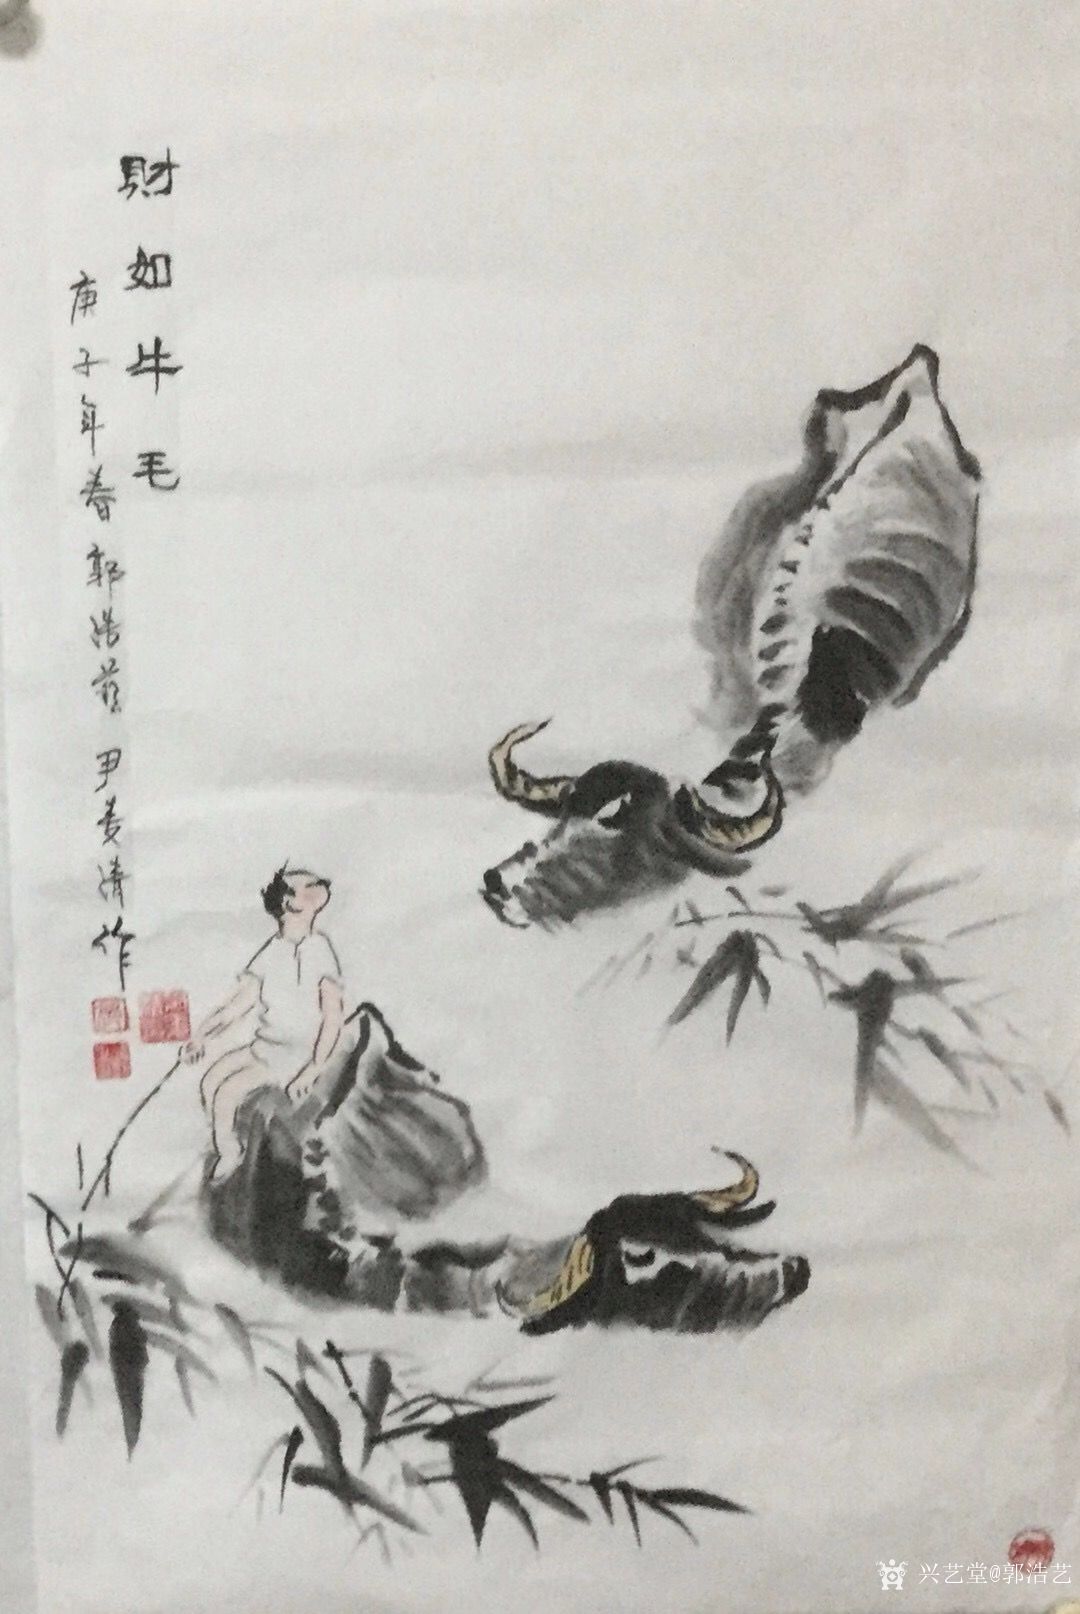 財如牛毛
庚子年春郭浩藝尹姜清作
兴艺堂@郭浩艺